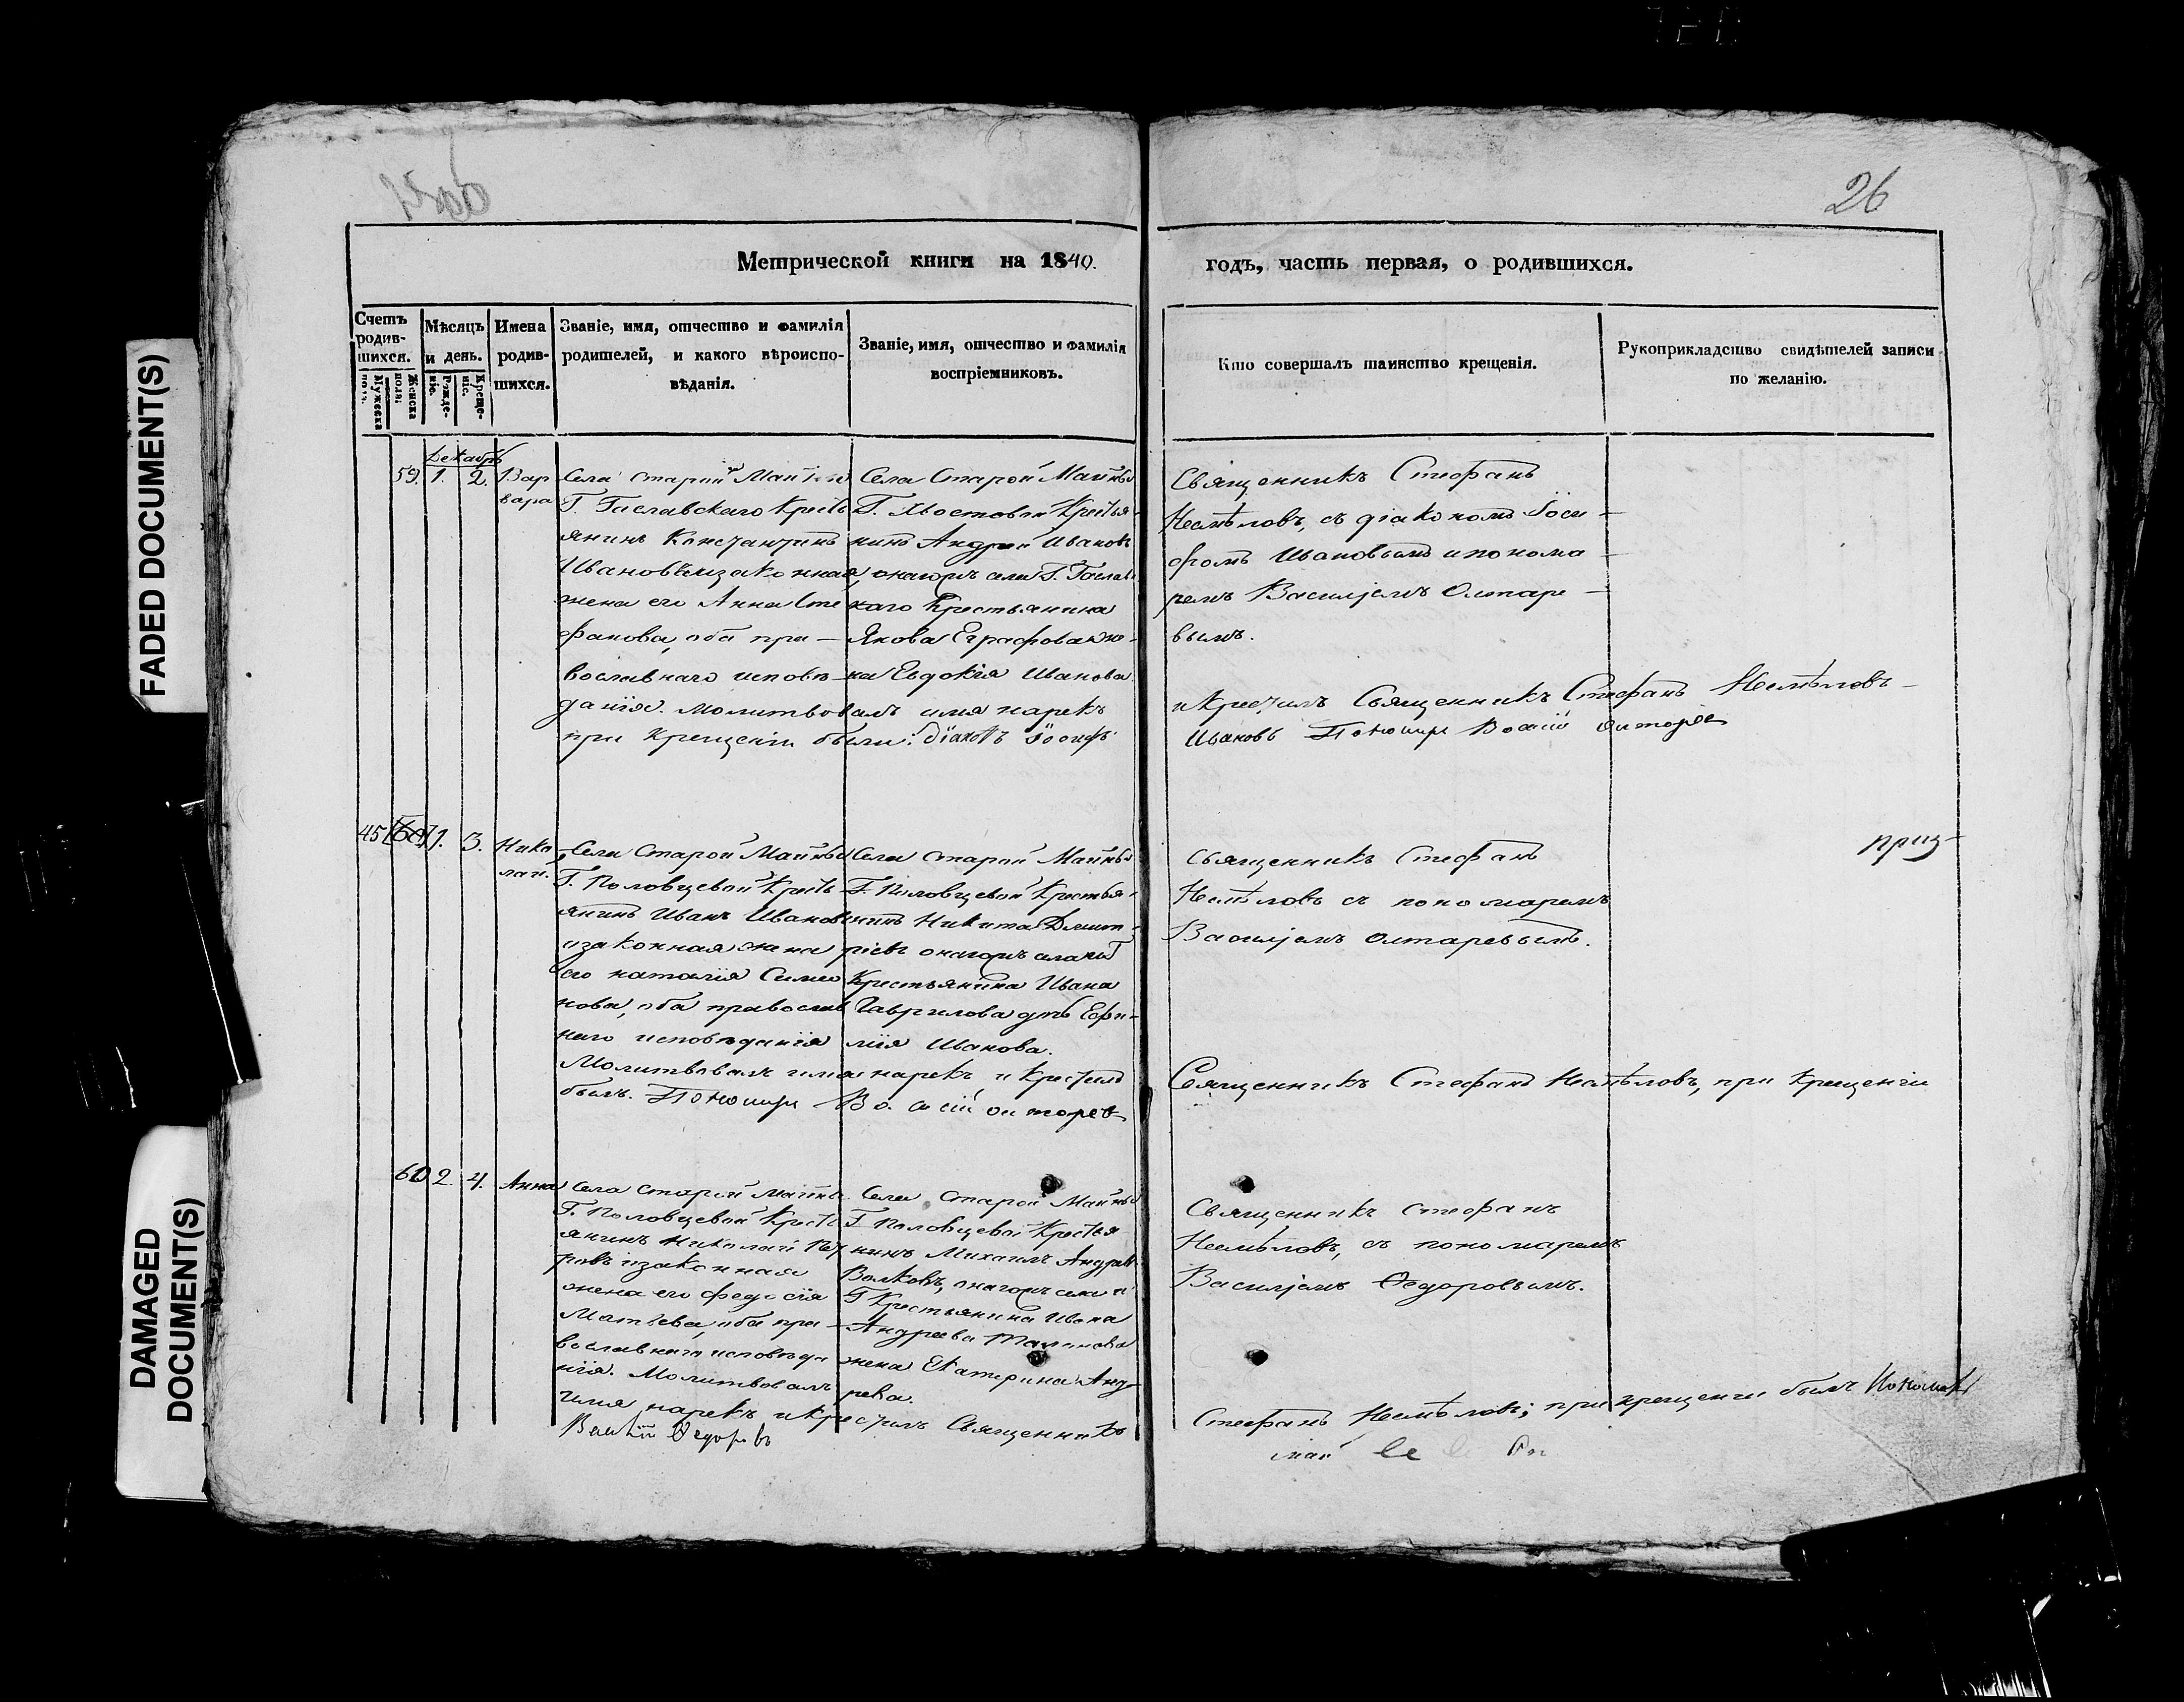 26
Метрической книги на 1840.
годъ, часть первая, о родившихся.
Счетъ родив-шихся.
Мужеска полъ.
Женска полъ;
Мѣсяцъ и день.
Рожде-ніе.
Креще-ніе.
Имена родив-шихся.
Званіе, имя, отчество и фамилія
родителей, и какого вѣроиспо-
вѣданія.
Званіе, имя, отчество и фамилія
воспріемниковъ.
Кто совершалъ таинство крещенія.
Рукоприкладство свидѣтелей записи
по желанію.
Декабрь
59. 1. 2. Вар
вара
Села Старой Майны
Г. Гиславскаго Кресть
янинъ Константинъ
Ивановъ изаконная
жена его Анна Сте
фанова, оба пра-
вославнаго исповѣ-
данія. Молитвовалъ имя нарекъ
при крещеніи были: діаконъ Іосифъ
Села Старой Майны
Г. Хвостовой Крестья-
нинъ Андрей Ивановъ
каго Крестьянина
Якова Еграфова же-
на Евдокія Иванова.
Священникъ Стефанъ
Несмѣловъ, съ діакономъ Іоси-
фомъ Ивановымъ и понома-
ремъ Василіемъ Олтаре-
вымъ.
и крестилъ Священникъ Стефанъ Несмѣловъ
Ивановъ
45 60 1. 3. Нико
лай.
Села Старой Майны
Г. Половцевой Кресть
янинъ Иванъ Ивановъ
изаконная жена
его наталія Симео
нова, оба православ
наго исповѣданія
Молитвовалъ имя нарекъ и крестилъ
былъ.
Села Старой Майны
Г. Половцевой Крестья-
нинъ Никита Дмит-
ріевъ
Крестьянина Ивана
Гаврилова
мія Иванова.
Священникъ Стефанъ
Несмѣловъ съ пономаремъ
Василіемъ Олтаревымъ.
Священникъ Стефанъ Несмѣловъ, при крещеніи
60 2. 4. Анна
Села Старой Майны
Г. Половцевой Кресть
янинъ Николай Пет
ровъ изаконная
жена его Федосія
Матвева, оба пра-
вославнаго исповѣда
нія. Молитвовалъ
имя нарекъ и крестилъ Священникъ
Василій Ѳедоровъ
Села Старой Майны
Г. Половцевой Крестья
нинъ Михаилъ Андреевъ
Волковъ,
Г. Крестьянина Ивана
Андреева
жена Екатерина Анд-
реева.
Священникъ Стефанъ
Несмѣловъ, съ пономаремъ
Василіемъ Ѳедоровымъ.
Стефанъ Несмѣловъ; при крещеніи былъ Пономарь
FADED DOCUMENT(S)
DAMAGED
DOCUMENT(S)